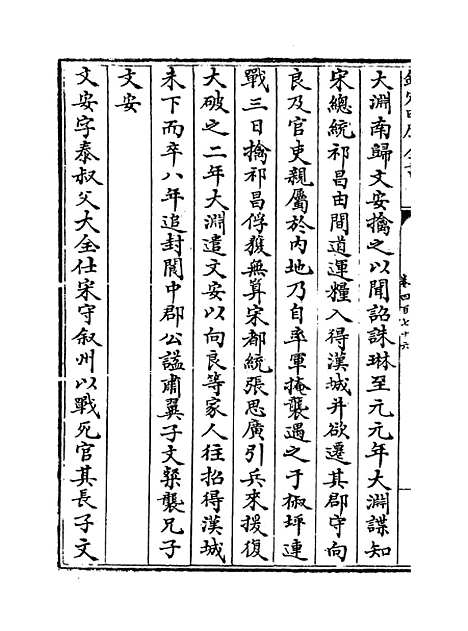 欽定四庫全書
卷四百七十六
大淵南歸文安擒之以聞詔誅琳至元元年大淵諜知
宋總統祁昌由間道運糧入得漢城并欲遷其郡守向
良及官吏親屬於内地乃自率軍掩襲遇之于椒坪連
戰三日擒祁昌俘獲無算宋都統張思廣引兵來援復
大破之二年大淵遣文安以向良等家人往招得漢城
未下而卒八年追封閬中郡公諡肅翼子文粲襲兄子
文安
文安字泰叔父大全仕宋守叙州以戰死官其長子文